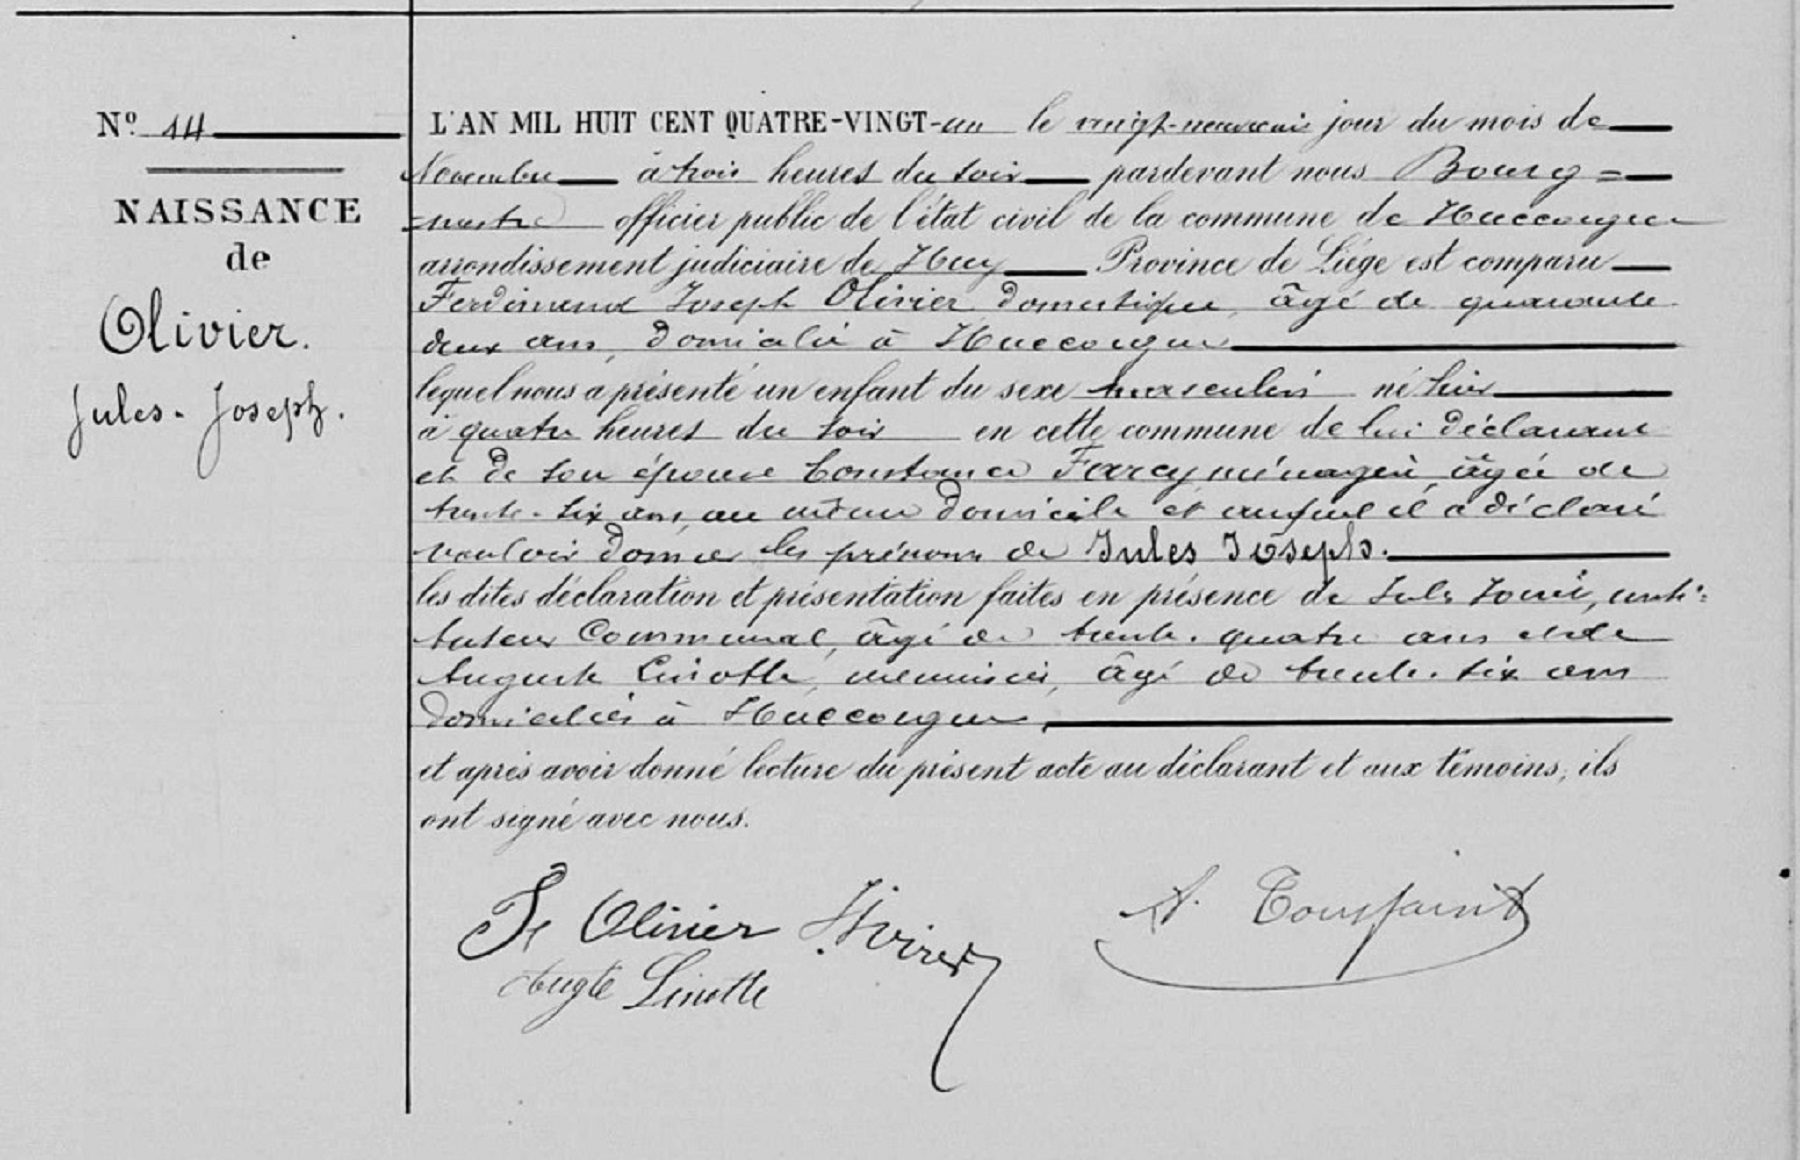 Nº 14
NAISSANCE
de
Olivier.
Jules-Joseph.
L'AN MIL HUIT CENT QUATRE-VINGT-un le vingt-neuvième jour du mois de
Novembre à trois heures du soir pardevant nous Bourg=
=mestre officier public de l'état civil de la commune de Huccorgne
arrondissement judiciaire de Huy Province de Liége est comparu
Ferdinand Joseph Olivier domestique, âgé de quarante
deux ans, domicilié à Huccorgne
lequel nous a présenté un enfant du sexe masculin né hier
à quatre heures du soir en cette commune de lui déclarant
et de son épouse Constance Farcy ménagère, âgée de
trente-six ans, au même domicile et auquel il a déclaré
vouloir donner les prénoms de Jules Joseph.
les dites déclaration et présentation faites en présence de Jules, insti=
tuteur Communal, âgé de trente-quatre ans et de
Auguste Linotte, menuisier, âgé de trente-six ans
domiciliés à Huccorgne,
et après avoir donné lecture du présent acte au déclarant et aux témoins, ils
ont signé avec nous.
Olivier
A. Toussaint
Augte Linotte